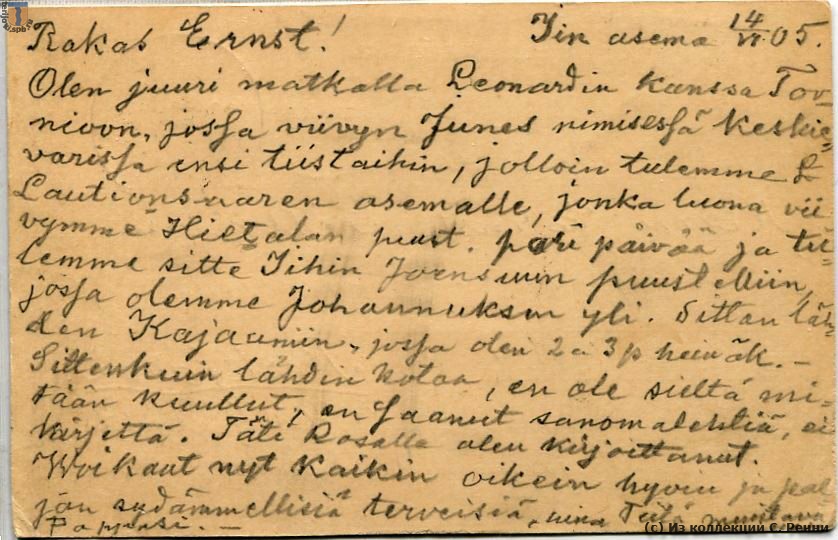 Rakas Ernst! Iin asema 14/VI 05.
Olen juuri matkalla Leonardin kanssa Tor-
nioon, jossa viivyn Junes nimisessä keskie-
varissa ensi tiistaihin, jolloin tulemme L
Lautionsaaren asemalle, jonka luona vii
vymme Hietalan puust. pari päivää ja tu-
lemme sitte Iihin Jornsuun puustelliin,
jossa olemme Johannuksen yli. Sittan läh-
den Kajaaniin, jossa olen 2 a 3 p heinäk. —
Sittenkuin lähdin kotoa, en ole sieltä mi-
tään kuullut, en saanut sanomalehtiä, ei
kirjettä. Täti Rosalle olen kirjoittanut.
Woikaat nyt kaikin oikein hyvin ja pal
jon sydämmellisiä terveisiä, niin Tätä
Pappasi. —
(c) Из коллекции С. Ренни